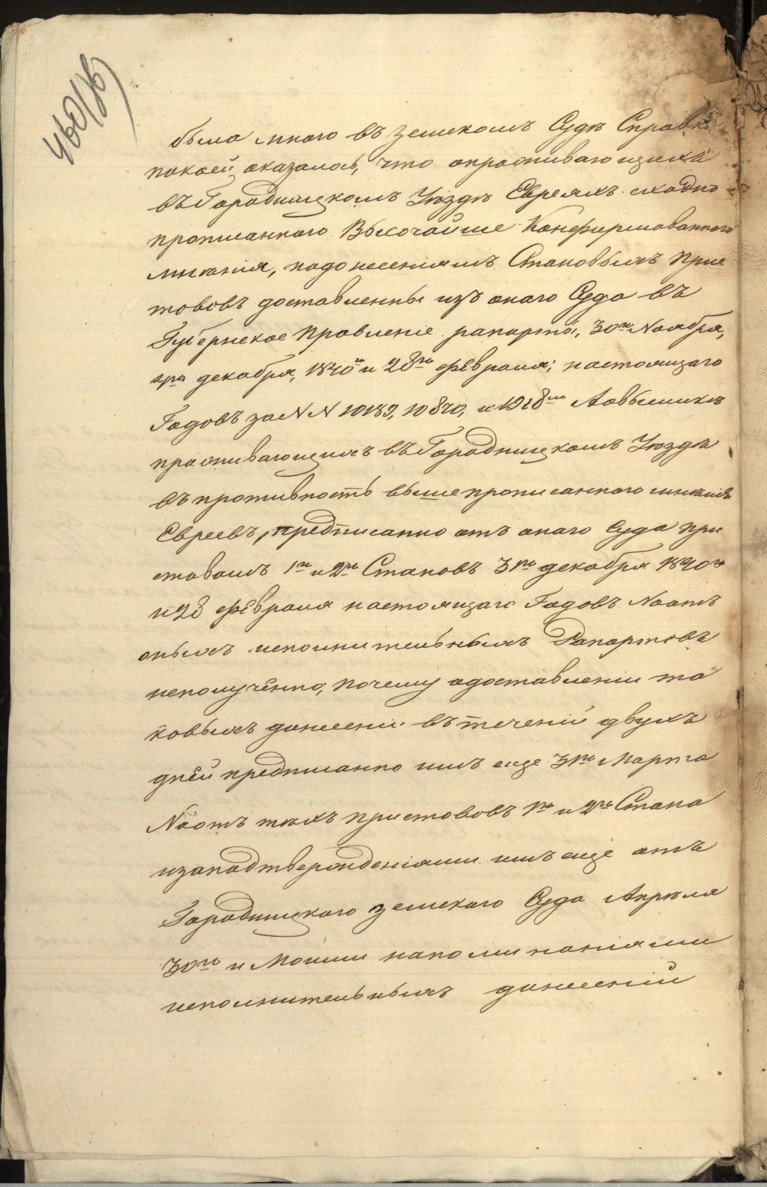 460/86
была мною въ земскомъ Судѣ Справк
покоей оказалось, что опроживающихъ
въ Городницкомъ Уѣздѣ Евреяхъ сходно
прописаннаго Высочайше Конфирмованного
мнѣнія, подонесеніямъ Становыхъ При
ставовъ доставленны изъ онаго Суда въ
Губернское Правленіе рапорты, 30го Ноября,
декабря, 1840го и 28го февраля, настоящаго
Годовъ за N N 10182, 10870, и 1918мъ Аовысылкѣ
проживающихъ въ Городницкомъ Уѣздѣ
въ противность вышепрописанного мнѣнія
Евреевъ, предписанно отъ онаго Суда при
ставамъ 1го и 2го Становъ 31го декабря 1840го
и 28 февраля настоящаго Годовъ Ноотъ
оныхъ исполнительныхъ Рапортовъ
неполученно, почему одоставленіи та
ковыхъ донесеній въ теченіи двухъ
дней предписанно имъ еще 31го Марта
Ноотъ тѣхъ приставовъ 1го и 2го Стана
изаподтвержденіями имъ еще отъ
Городницкаго земскаго Суда Апрѣля
30го и Моими напоминаніями
исполнительныхъ донесеній